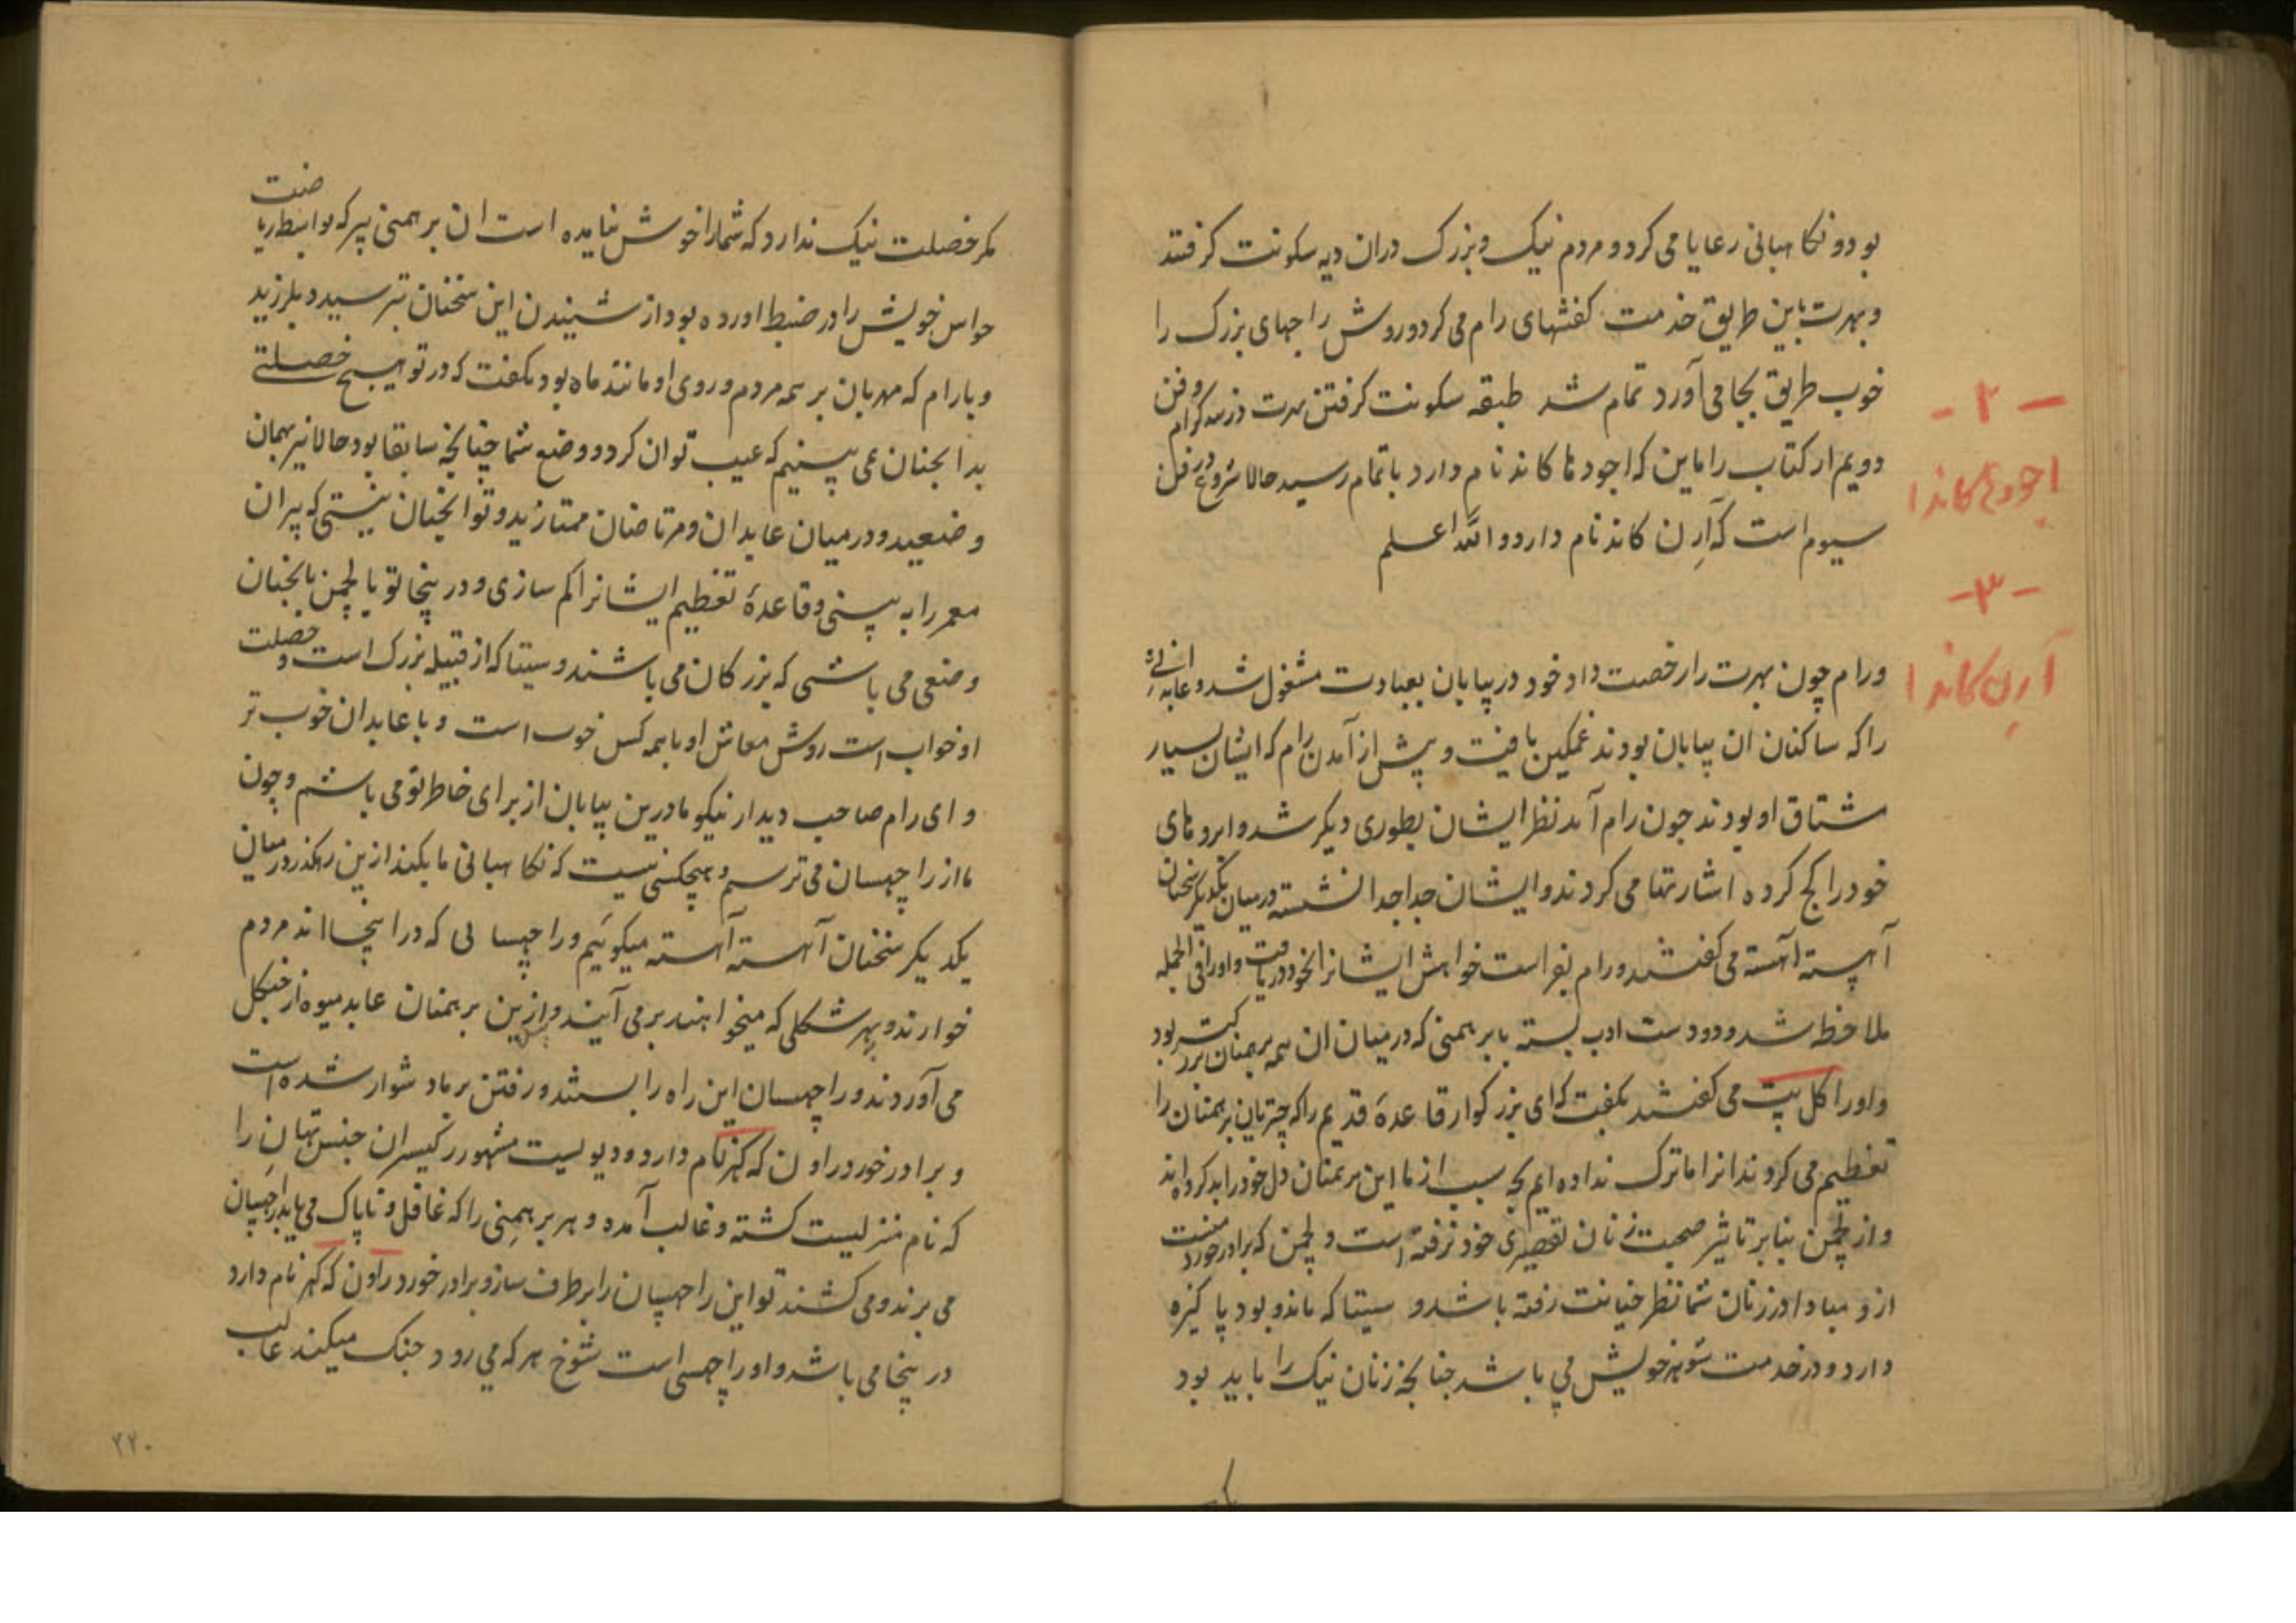 بود و نکاهبانی رعایا می کرد و مردم نیک و بزرک دران دیه سکونت کرفتند
و بهرت باین طریق خدمت کفشهای رام می کرد و روش راجهای بزرک را
خوب طریق بجا می آورد تمام شد طبقه سکونت کرفتن بهرت در نندکرام و فن
دویم از کتاب راماین که اجودها کاند نام دارد باتمام رسید حالا شروع در فن
سیوم است که آرن کاند نام دارد و الله اعلم
- ۲ -
اجودها کاندا
- ۳ -
آرن کاندا
و رام چون بهرت را رخصت داد خود در بیابان بعبادت مشغول شد و عابدانی
را که ساکنان ان بیابان بودند غمکین یافت و پیش از آمدن رام که ایشان بسیار
مشتاق او بودند چون رام آمد نظر ایشان بطوری دیکر شد و ابروهای
خود را کج کرده اشارتها می کردند و ایشان جدا جدا نشسته در میان یکدیکر سخنان
آهسته آهسته می کفتند و رام بفراست خواهش ایشانرا بخود دریافت و اورا فی الجمله
ملاحظه شد و دو دست ادب بسته با برهمنی که درمیان ان همه برهمنان بزرکتر بود
و اورا کل پت می کفتند بکفت که ای بزرکوار قاعدهٔ قدیم را که چتریان برهمنان را
تعظیم می کردند انرا ما ترک نداده ایم بچه سبب از ما این برهمنان دل خود را بد کرده اند
و از لچمن بنابر تاثیر صحبت زنان تقصیری خود نرفته است و لچمن که برادر خورد منست
ازو مبادا در زنان شما نظر خیانت رفته باشد و سیتا که ماند و بود پاکیزه
دارد و در خدمت شوهر خویش می باشد چنانچه زنان نیک را باید بود
مکر خصلت نیک ندارد که شما را خوش نیامده است ان برهمنی پیر که بواسطه ریاضت
حواس خویش را در ضبط اورده بود از شنیدن این سخنان بترسید و بلرزید
و با رام که مهربان بر همه مردم و روی او مانند ماه بود بکفت که در تو هیچ خصلتی
بد انچنان نمی بینیم که عیب توان کرد و وضع شما چنانچه سابقا بود حالا نیز بهمان
وضعید و درمیان عابدان و مرتاضان ممتازید و تو انچنان نیستی که پیران
معمر را به بینی و قاعدهٔ تعظیم ایشانرا کم سازی و در ینجا تو با لچمن بانچنان
وضعی می باشی که بزرکان می باشند و سیتا که از قبیله بزرک است و خصلت
او خواب است روش معاش او با همه کس خوب است و با عابدان خوب تر
و ای رام صاحب دیدار نیکو ما درین بیابان از برای خاطر تو می باشم و چون
ما از راچهسان می ترسم و هیچکسی نیست که نکاهبانی ما بکند ازین رهکذر در میان
یکدیکر سخنان آهسته آهسته میکوئیم و راچهسا نی که در اینجا اند مردم
خوارند و بهر شکلی که میخواهند بر می آیند و ازین برهمنان عابد میوه از جنکل
می آوردند و راچهسان این راه را بستند و رفتن بر ما دشوار شده است
و برادر خورد راون که کهر نام دارد و دیویست مشهور در کیسران جنس تهان را
که نام منزلیست کشته و غالب آمده و هر برهمنی را که غافل و ناپاک می یابد راچهسان
می برند و می کشند تو این راچهسان را برطرف ساز و برادر خورد راون که کهر نام دارد
در ینجا می باشد و او راچهسی است شوخ هر که می رود جنک میکند غالب
۲۲۰